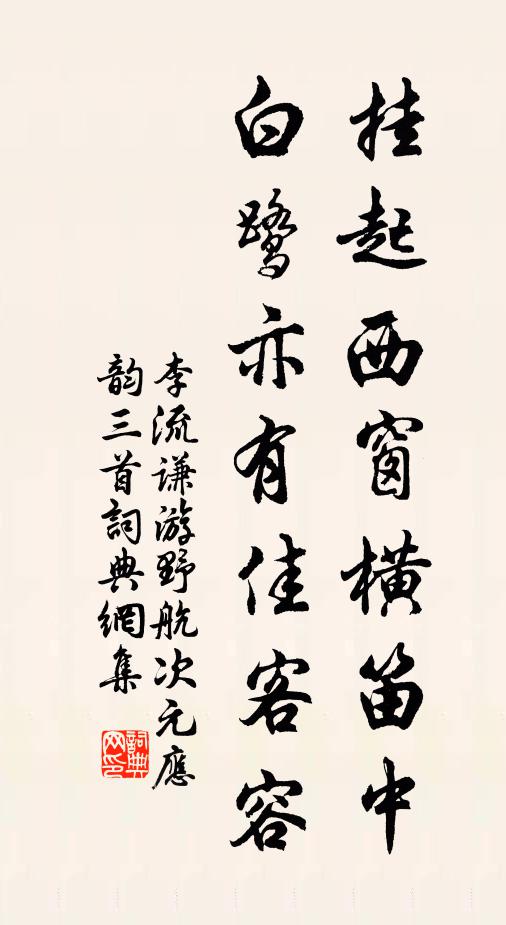 挂起西窗横笛中
白鹭亦有佳客容
李流谦游野航次元應
韵三首詞典網集
詞典
网印